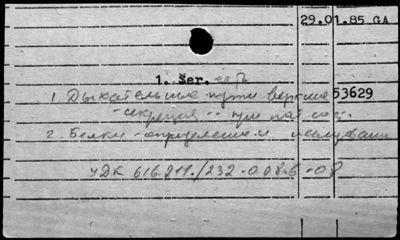 29.01.85 GA
1. Ser. есть
1. Дыхательные пути верхние 53629
-секреция -- при пат. сост.
2. Белки -определение и исследование
УДК 616.211./232-008.6-08